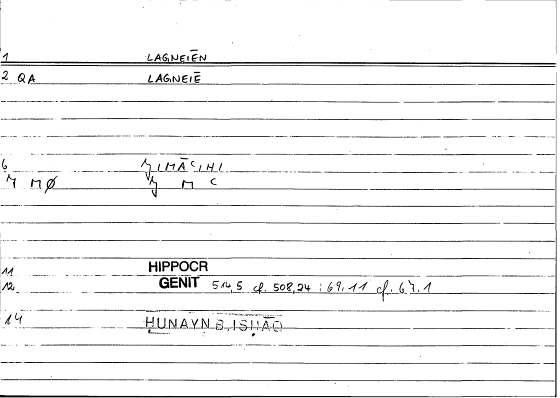 1 LAGNEIĒN
2 QA LAGNEIĒ
6 ӡIMĀʿIHI
M MØ ӡ M C
11 HIPPOCR
12 GENIT 514,5 cf. 508,24 : 69.11 cf. 67.1
14 ḤUNAYN B. ISḤĀQ